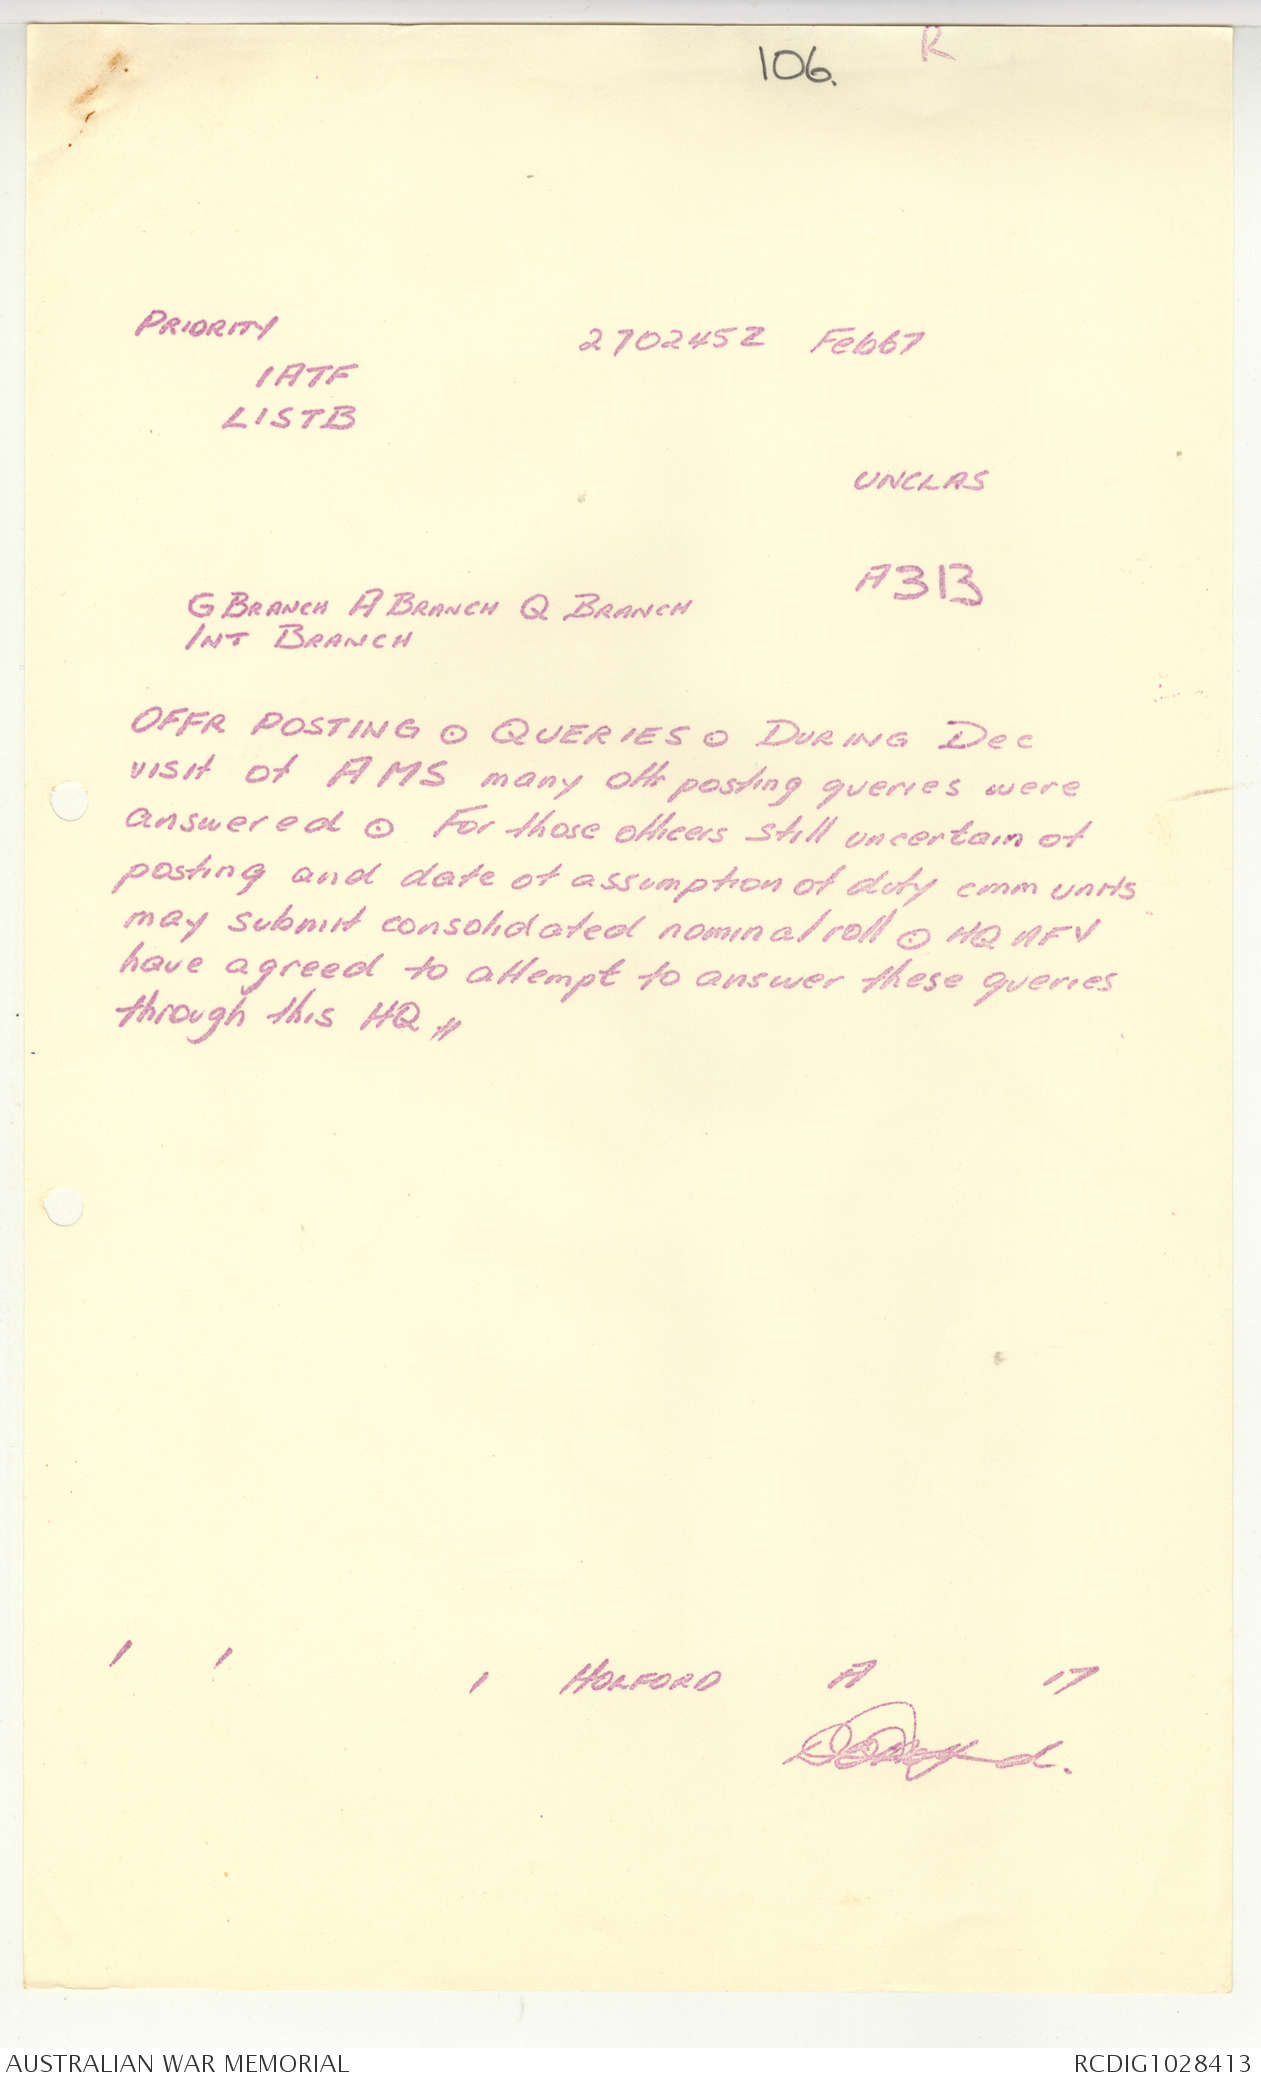 106.
R
PRIORITY
270245Z Feb67
1ATF
LISTB
UNCLAS
A313
G BRANCH A BRANCH Q BRANCH
INT BRANCH
OFFR POSTING ⊙ QUERIES ⊙ DURING Dec
visit of AMS many offr posting queries were
answered ⊙ For those officers still uncertain of
posting and date of assumption of duty cmm units
may submit consolidated nominal roll ⊙ HQ AFV
have agreed to attempt to answer these queries
through this HQ //
1 1 1 HOLFORD A 17
AUSTRALIAN WAR MEMORIAL
RCDIG1028413